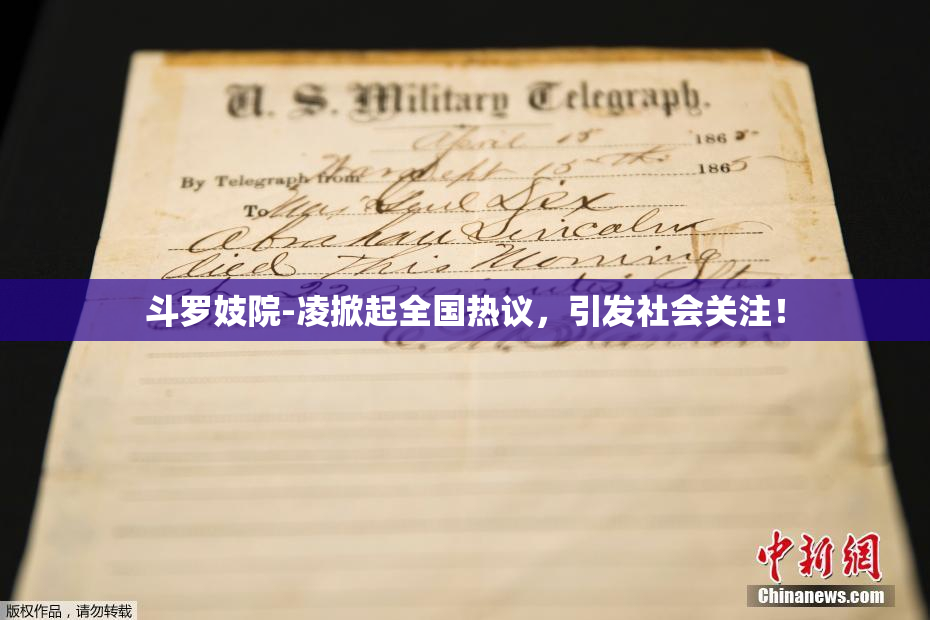 U. S. Military Telegraph.
April 15 1865
By Telegraph from War Dept 15th 1865
To Maj Genl Dix
Abraham Lincoln
died This Morning
22 minutes after
斗罗妓院-凌掀起全国热议，引发社会关注！
中新网
Chinanews.com
版权作品，请勿转载